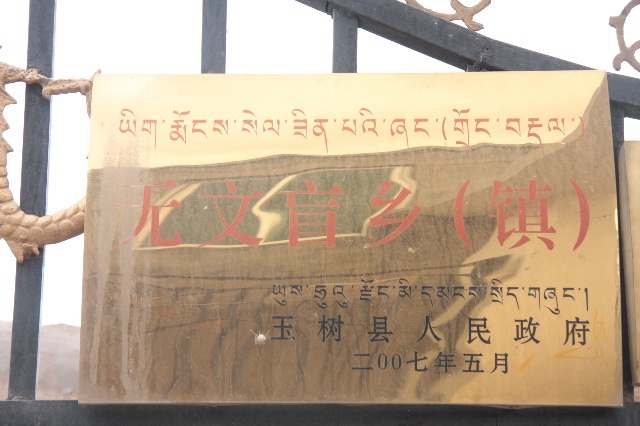 ཡིག་རྨོངས་སེལ་ཟིན་པའི་ཞང་(གྲོང་བརྡལ་)
无文盲乡(镇)
ཡུས་ཧྲུའུ་རྫོང་མི་དམངས་སྲིད་གཞུང་།
玉树县人民政府
二00七年五月